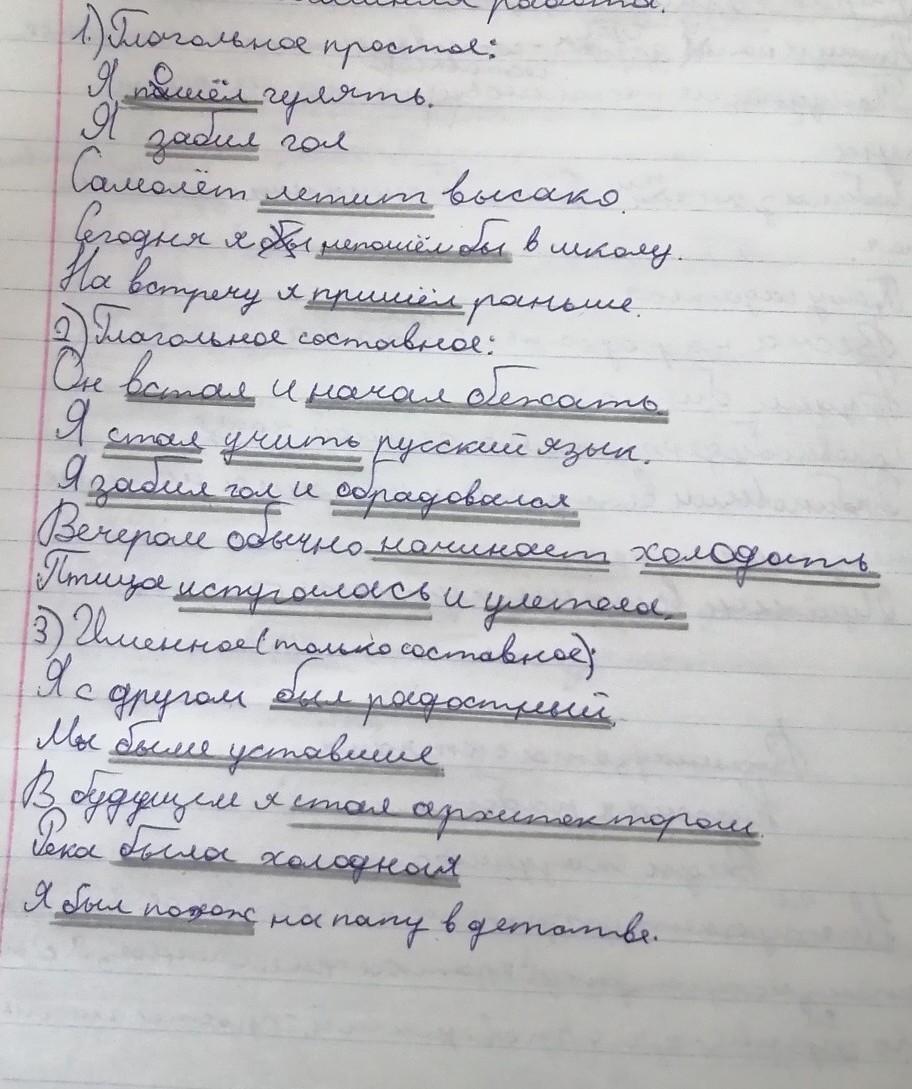 работа.
1.) Глагольное простое:
Я пошёл гулять.
Я забил гол
Самолёт летит высако.
Сегодня я непошёл бы в школу.
На встречу я пришёл раньше.
2) Глагольное составное:
Он встал и начал бежать.
Я стал учить русский язык.
Я забил гол и обрадовался
Вечером обычно начинает холодать
Птица испугалась и улетела.
3) Именное (только составное):
Я с другом был радостный.
Мы были уставшие.
В будущем я стал архитектором.
Река была холодная
Я был похож на папу в детстве.